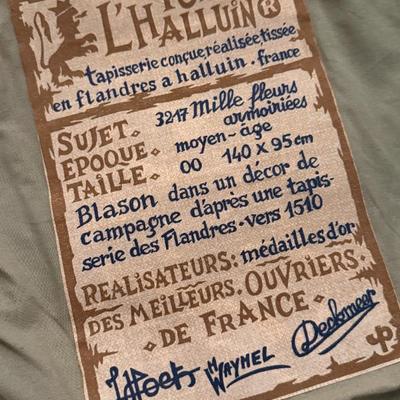 L'HALLUIN®
tapisserie conçue, réalisée, tissée
en flandres a halluin. france
SUJET. 3217 Mille fleurs
armoiriées
EPOQUE. moyen-âge
TAILLE. 00 140 x 95 cm
Blason dans un décor de
campagne d'après une tapis-
serie des Flandres. vers 1510
REALISATEURS: médailles d'or
DES MEILLEURS. OUVRIERS.
DE FRANCE